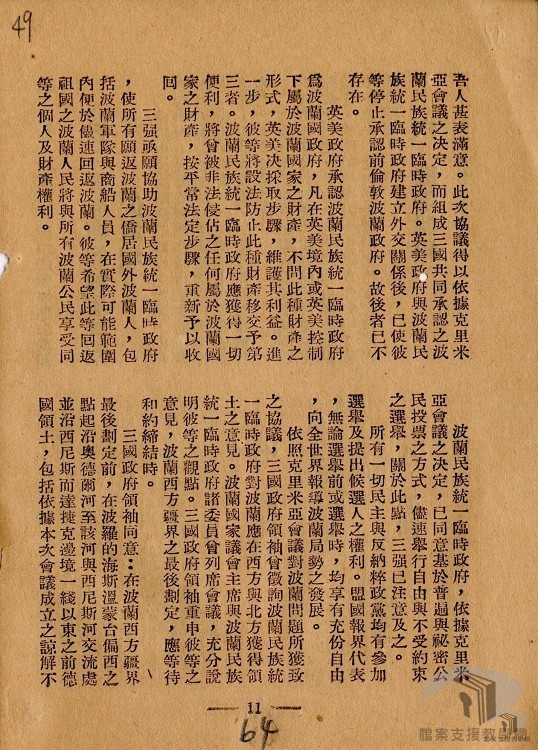 49
吾人甚表滿意。此次協議得以依據克里米
亞會議之決定，而組成三國共同承認之波
蘭民族統一臨時政府。英美政府與波蘭民
族統一臨時政府建立外交關係後，已使彼
等停止承認前倫敦波蘭政府。故後者已不
存在。
英美政府承認波蘭民族統一臨時政府
爲波蘭國政府，凡在英美境內或英美控制
下屬於波蘭國家之財產，不問此種財產之
形式，英美決採取步驟，維護其利益。進
一步，彼等將設法防止此種財產移交予第
三者。波蘭民族統一臨時政府應獲得一切
便利，將曾被非法侵佔之任何屬於波蘭國
家之財產，按平常法定步驟，重新予以收
回。
三强亟願協助波蘭民族統一臨時政府
，使所有願返波蘭之僑居國外波蘭人，包
括波蘭軍隊與商船人員，在實際可能範圍
內便於儘速回返波蘭。彼等希望此等回返
祖國之波蘭人民將與所有波蘭公民享受同
等之個人及財產權利。
波蘭民族統一臨時政府，依據克里米
亞會議之決定，已同意基於普遍與祕密公
民投票之方式，儘速舉行自由與不受約束
之選舉，關於此點，三强已注意及之。
所有一切民主與反納粹政黨均有參加
選舉及提出候選人之權利。盟國報界代表
，無論選舉前或選舉時，均享有充份自由
，向全世界報導波蘭局勢之發展。
依照克里米亞會議對波蘭問題所獲致
之協議，三國政府領袖曾徵詢波蘭民族統
一臨時政府對波蘭應在西方與北方獲得領
土之意見。波蘭國家議會主席與波蘭民族
統一臨時政府諸委員曾列席會議，充分說
明彼等之觀點。三國政府領袖重申彼等之
意見，波蘭西方疆界之最後劃定，應等待
和約締結時。
三國政府領袖同意：在波蘭西方疆界
最後劃定前，在波羅的海斯溫蒙台偏西之
點起沿奧德爾河至該河與西尼斯河交流處
並沿西尼斯而達捷克邊境一綫以東之前德
國領土，包括依據本次會議成立之諒解不
11
64
檔案支援教學網